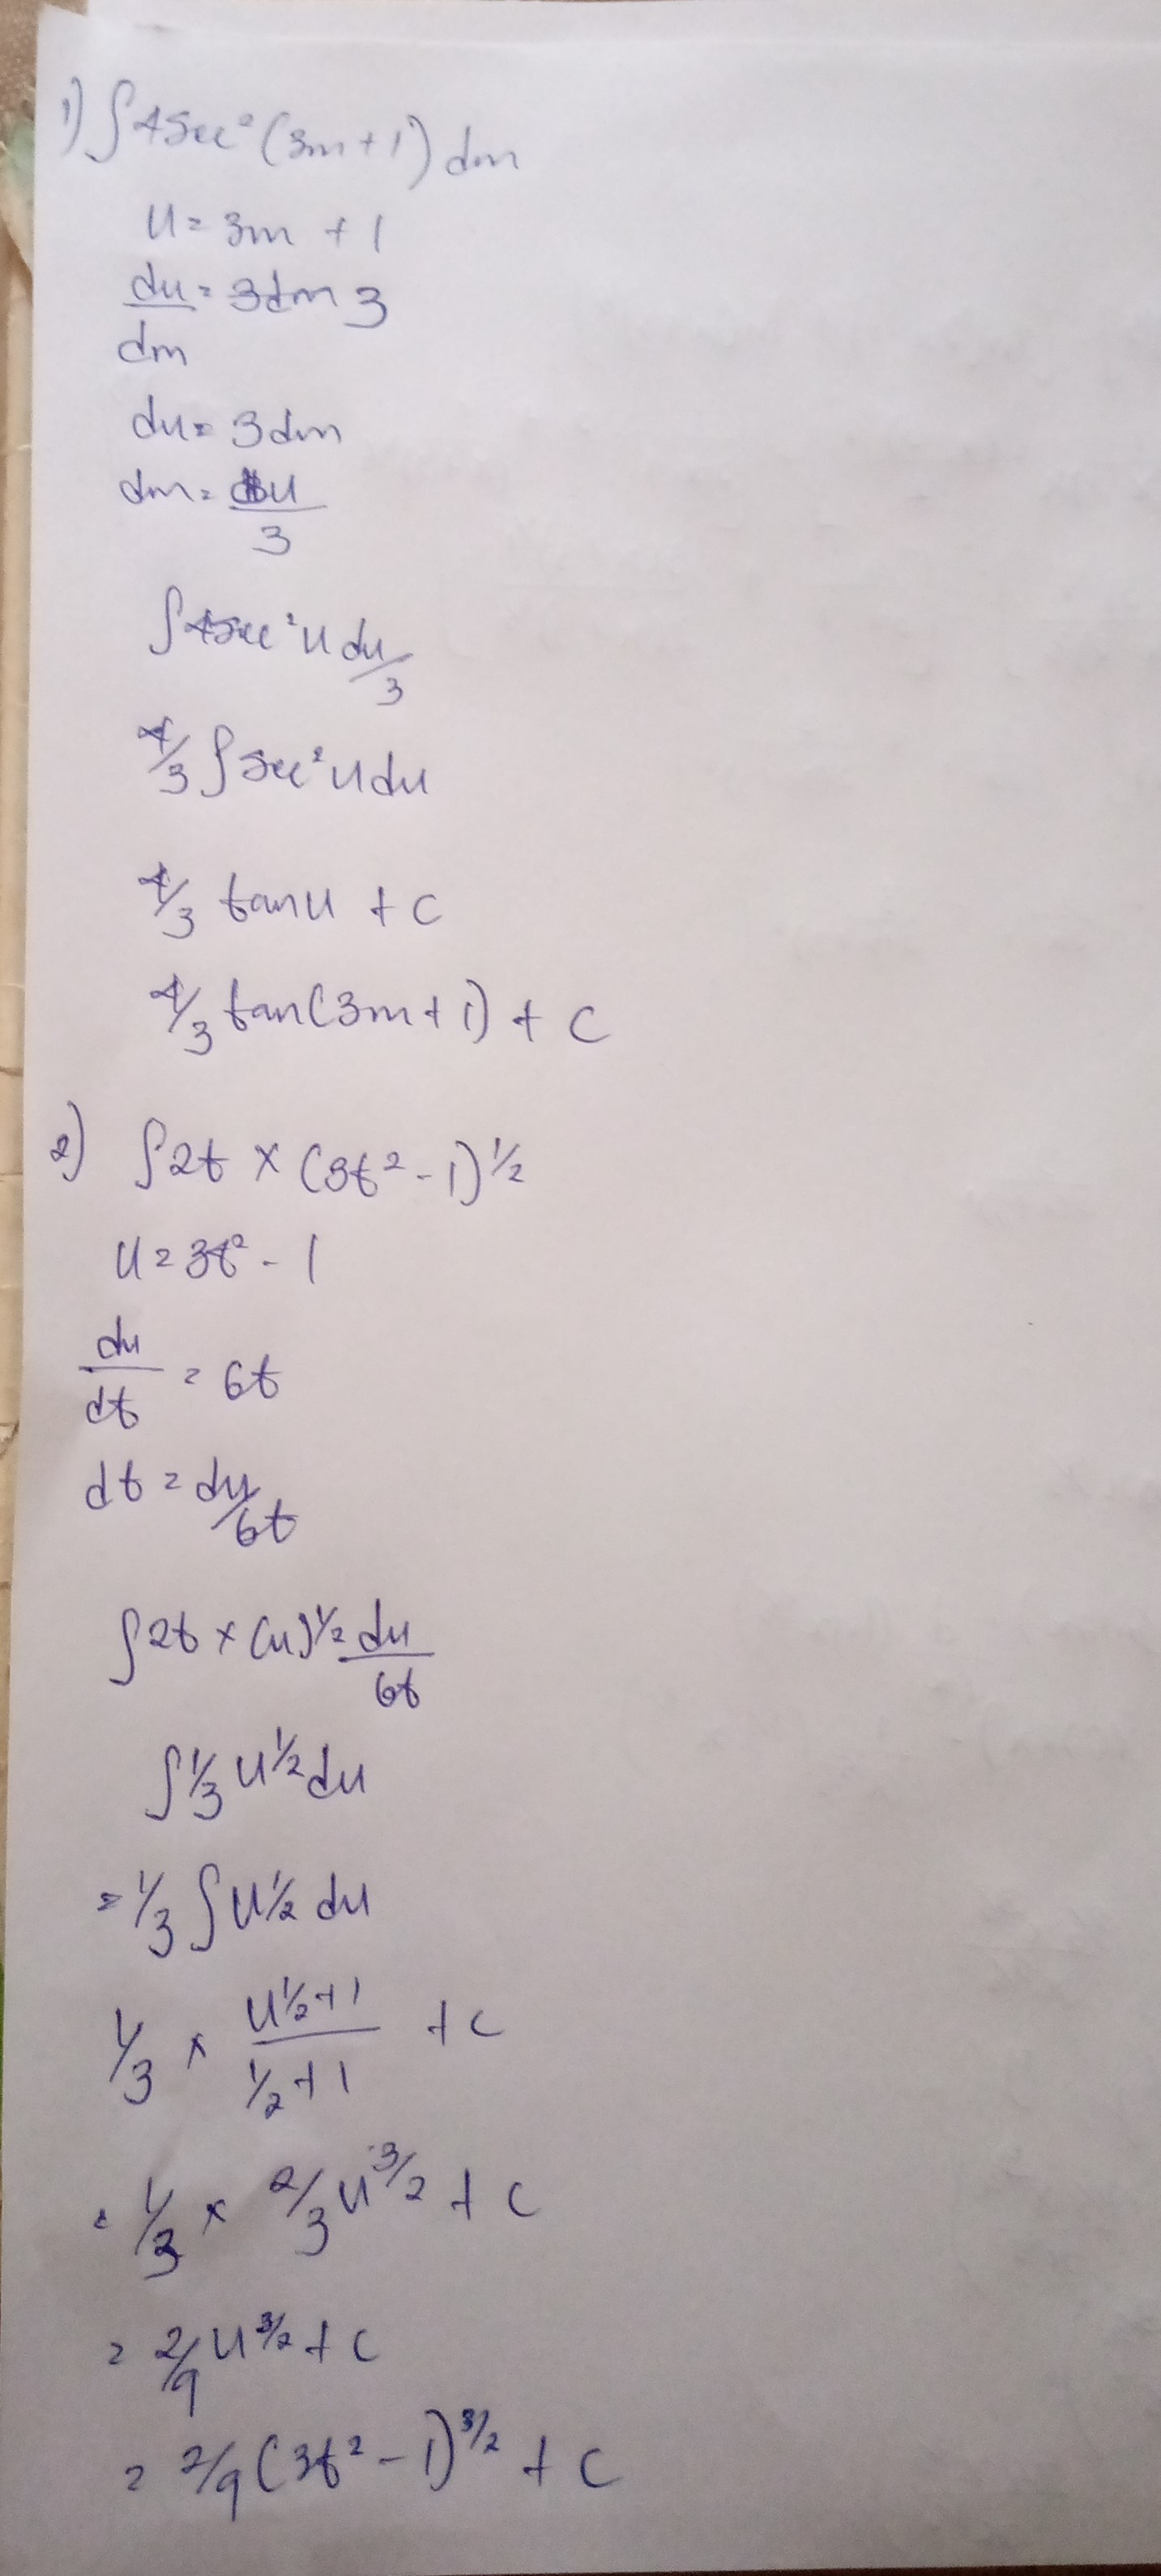 1) ∫4Sec²(3m+1) dm
U = 3m + 1
du/dm = 3dm 3
du = 3dm
dm = du/3
∫4Sec²u du/3
4/3 ∫Sec²u du
4/3 tanu + c
4/3 tan(3m+1) + c
2) ∫2t × (3t²-1)^½
U = 3t² - 1
du/dt = 6t
dt = du/6t
∫2t × (u)^½ du/6t
∫⅓ u^½ du
= ⅓ ∫u^½ du
⅓ × u^(½+1)/(½+1) + c
= ⅓ × ⅔ u^3/2 + c
= 2/9 u^3/2 + c
= 2/9 (3t² - 1)^3/2 + c